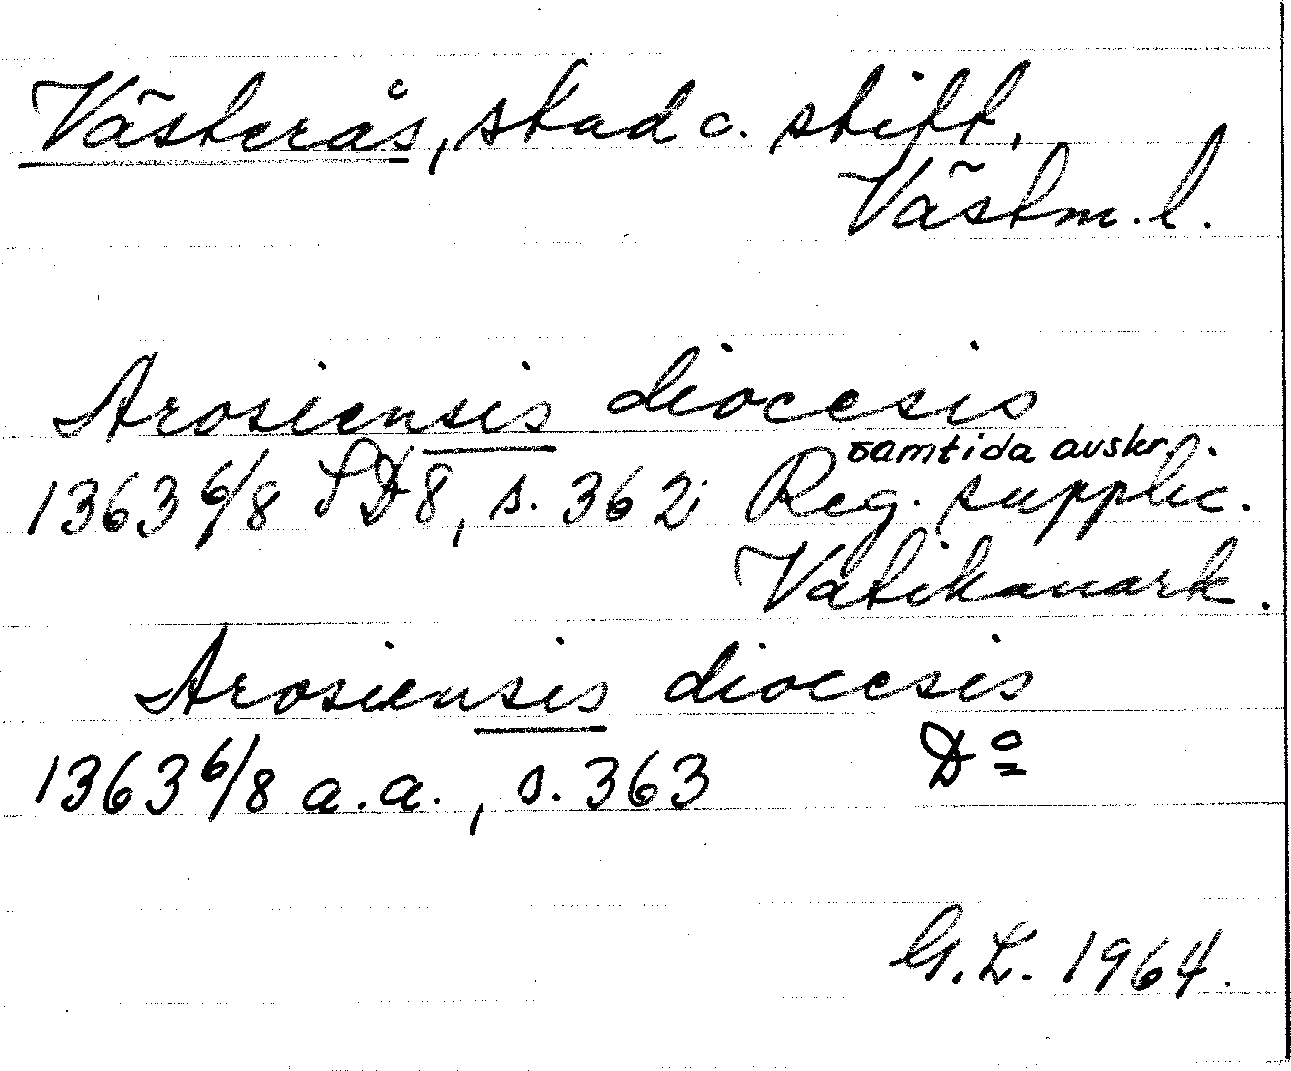 Västerås, stad o. stift,
Västm. l.
Arosiensis diocesis
samtida avskr.
1363 6/8 SD 8, s. 362 Reg. supplic.
Vatikanark.
Arosiensis diocesis
1363 6/8 a.a., s. 363 Do
G.L. 1964.